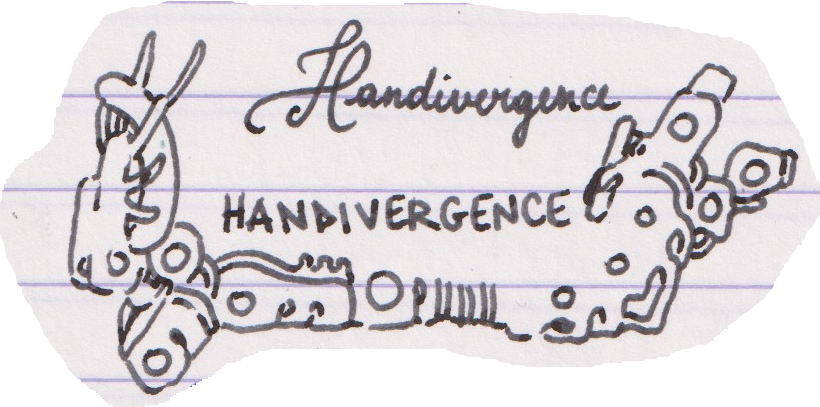 Handivergence
HANDIVERGENCE